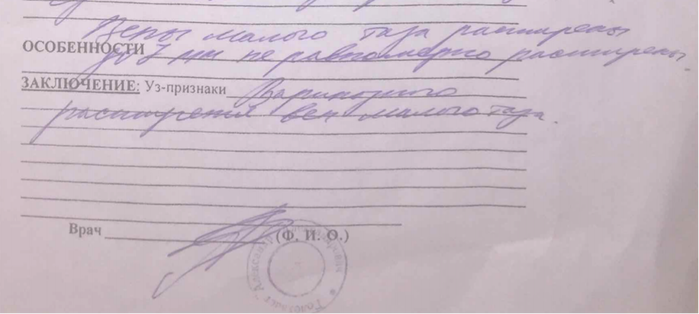 Вены малого таза расширены
ОСОБЕННОСТИ до 7 мм не равномерно расширены.
ЗАКЛЮЧЕНИЕ: Уз-признаки Варикозного
расширения вен малого таза.
Врач (Ф. И. О.)